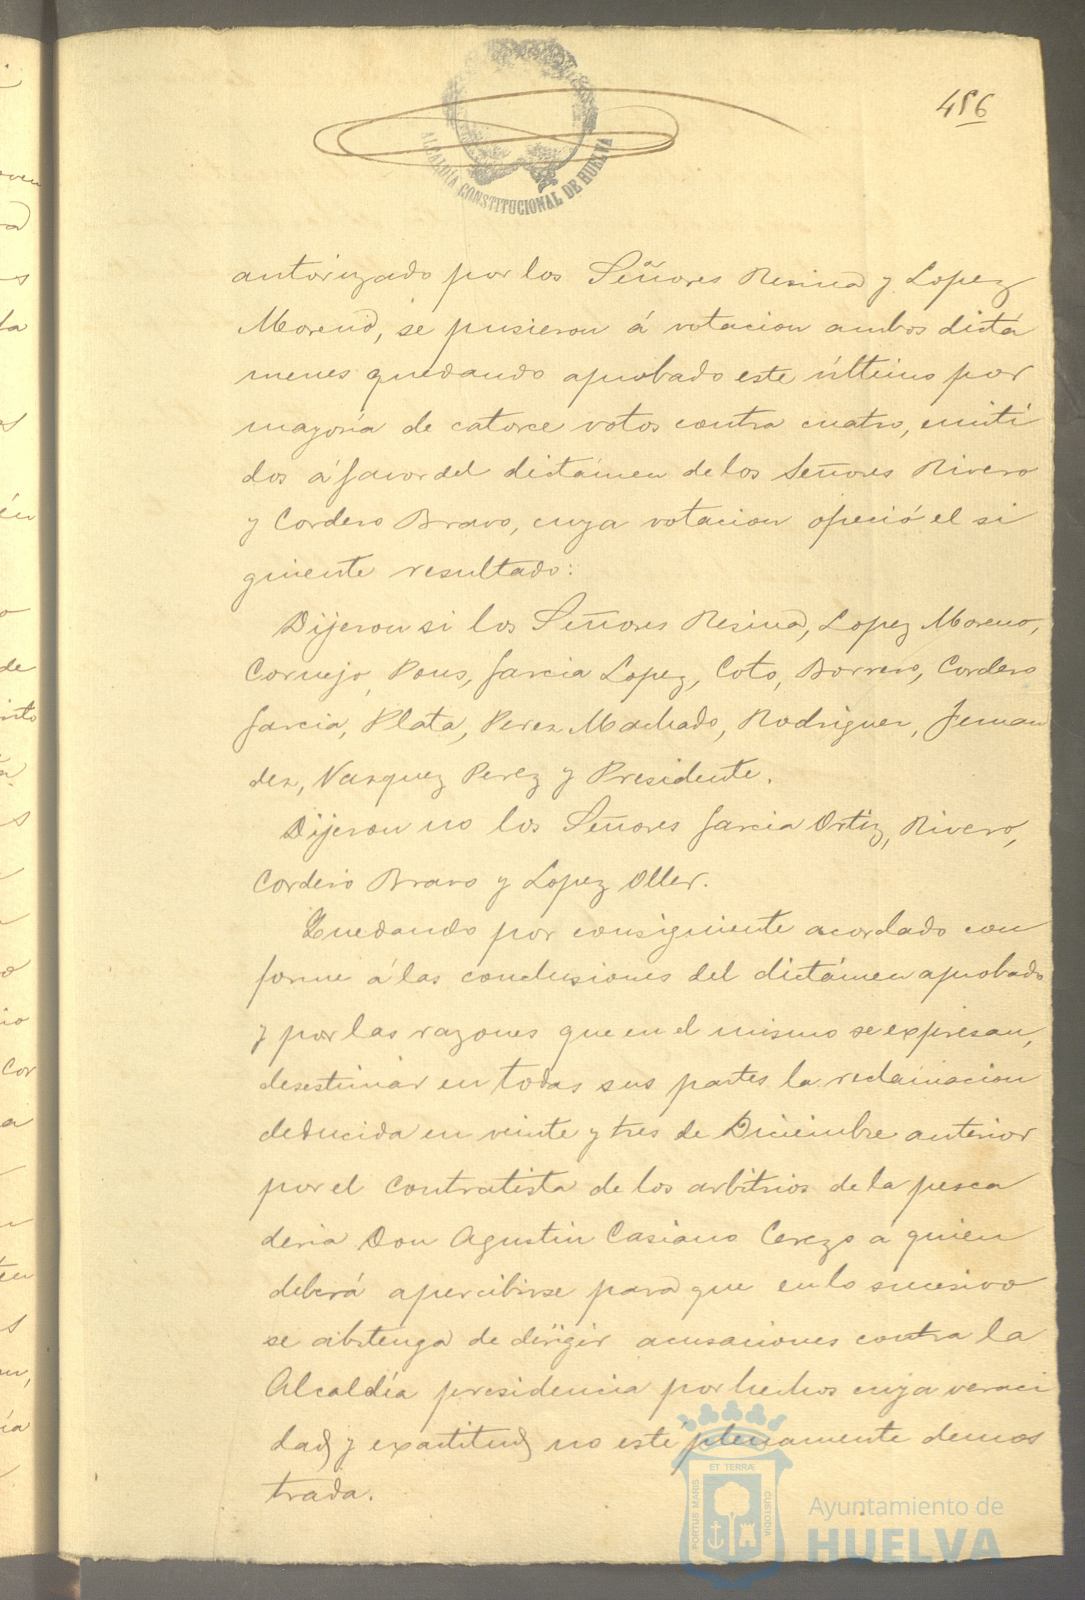 456
ALCALDÍA CONSTITUCIONAL DE HUELVA
autorizado por los Señores Resina y Lopez
Moreno, se pusieron á votacion ambos dictá
menes quedando aprobado este último por
mayoría de catorce votos contra cuatro, emiti
dos á favor del dictámen de los Señores Rivero
y Cordero Bravo, cuya votacion ofreció el si
guiente resultado:
Dijeron si los Señores Resina, Lopez Moreno,
Cornejo, Pons, Garcia Lopez, Coto, Borrero, Cordero
Garcia, Plata, Perez Machado, Rodriguez, Fernan
dez, Vazquez Perez y Presidente.
Dijeron no los Señores Garcia Ortiz, Rivero,
Cordero Bravo y Lopez Oller.
Quedando por consiguiente acordado con
forme á las conclusiones del dictámen aprobado
y por las razones que en el mismo se expresan,
desestimar en todas sus partes la reclamacion
deducida en veinte y tres de Diciembre anterior
por el contratista de los arbitrios de la pesca
deria Don Agustin Casiano Cerezo a quien
deberá apercibirse para que en lo sucesivo
se abstenga de dirigir acusaciones contra la
Alcaldía presidencia por hechos cuya veraci
dad y exactitud no esté plenamente demos
trada.
PORTUS MARIS
ET TERRÆ
CUSTODIA
Ayuntamiento de
HUELVA